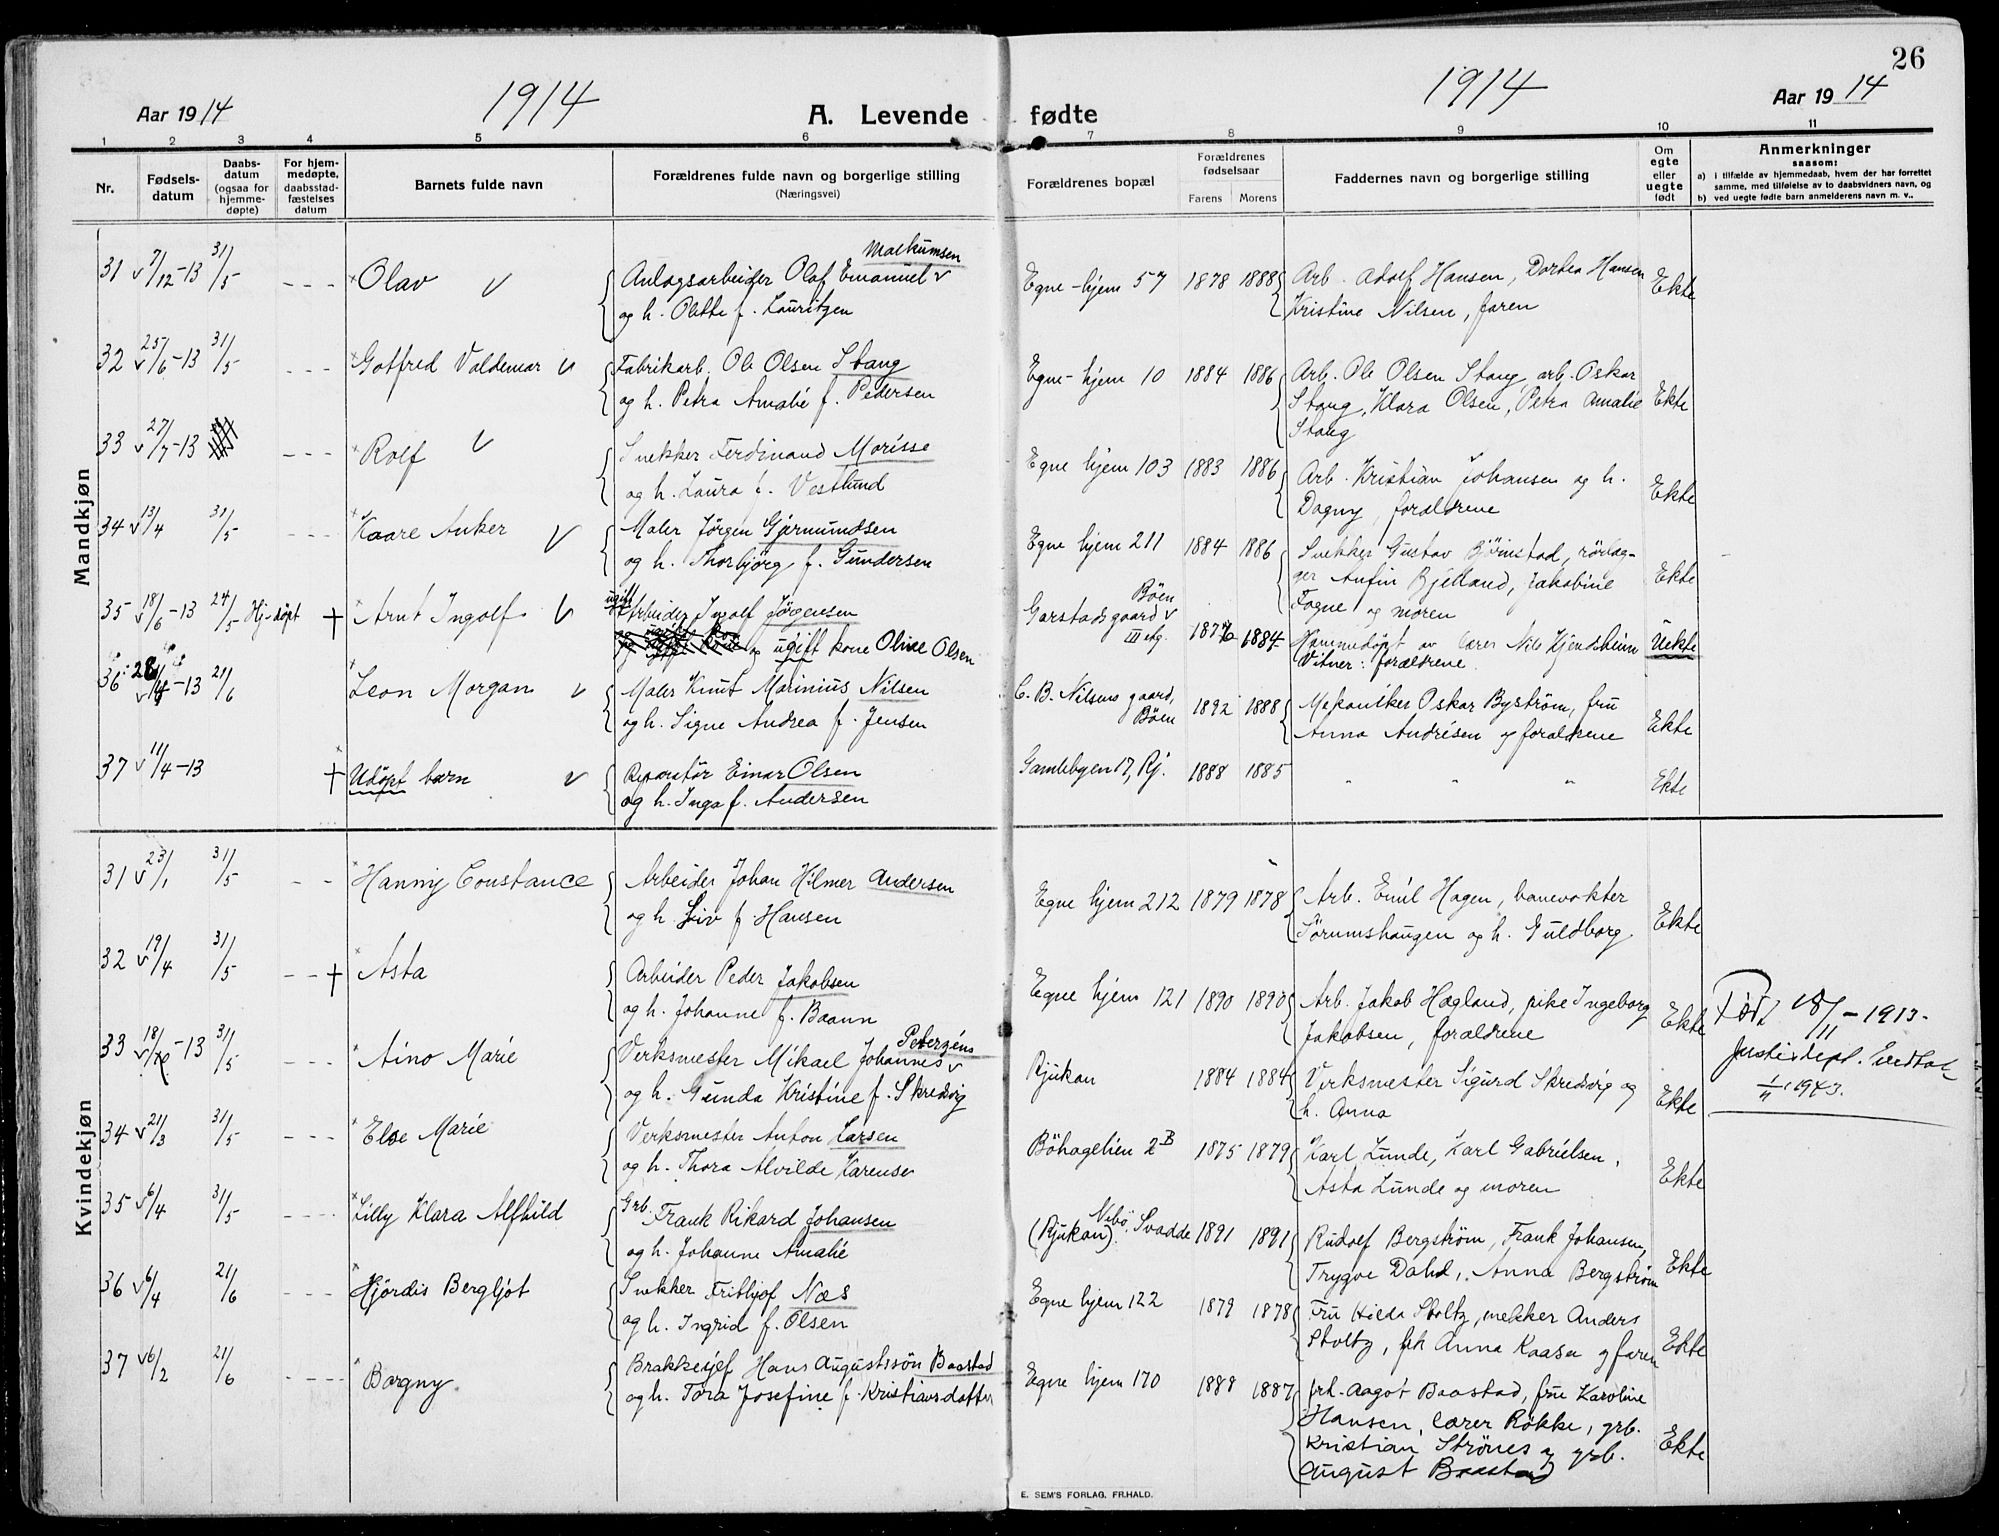 26
Aar 1914
1914
A. Levende fødte
1914
Aar 1914
1 2 3 4 5 6 7 8 9 10 11
Nr.
Fødsels-
datum
Daabs-
datum
(ogsaa for
hjemme-
døpte)
For hjem-
medøpte,
daabsstad-
fæstelses
datum
Barnets fulde navn
Forældrenes fulde navn og borgerlige stilling
(Næringsvei)
Forældrenes bopæl
Forældrenes
fødselsaar
Farens Morens
Faddernes navn og borgerlige stilling
Om
egte
eller
uegte
født
Anmerkninger
saasom:
a) i tilfælde av hjemmedaab, hvem der har forrettet
samme, med tilføielse av to daabsvidners navn, og
b) ved uegte fødte barn anmelderens navn m. v..
Mandkjøn
31 7/12-13 31/5 --- Olav
Malkumsen
Anlægsarbeider Olaf Emanuel
og h. Olette f. Lauritzen
Egne-hjem 57 1878 1888
Arb. Adolf Hansen, Dortea Hansen
Kristine Nilsen, faren
Ekte
32 25/6-13 31/5 --- Gotfred Valdemar
Fabrikarb. Ole Olsen Stang
og h. Petra Amalie f. Pedersen
Egne-hjem 10 1884 1886
Arb. Ole Olsen Stang, arb. Oskar
Stang, Klara Olsen, Petra Amalie
Stang
Ekte
33 27/7-13 --- Rolf
Snekker Ferdinand Morisse
og h. Laura f. Vestlund
Egne hjem 103 1883 1886
Arb. Kristian Johansen og h.
Dagny, forældrene
Ekte
34 13/4 31/5 --- Kaare Anker
Maler Jørgen Gjermundsen
og h. Thorbjörg f. Gundersen
Egne hjem 211 1884 1886
Snekker Gustav Björnstad, rörlæg-
ger Anfin Bjelland, Jakobine
Fogne og moren
Ekte
35 18/6-13 24/5 Hj-döpt † Arnt Ingolf
ugift
Arbeider Ingolf Jørgensen
og ugift kone Oline Olsen
Garstadsgaard Böen
III etg. 1876 1884
Hjemmedöpt av lærer Nils Kjendsheim
Vitner: forældrene.
Uekte
36 28/4-13 21/6 Leon Morgan
Maler Knut Marinius Nilsen
og h. Signe Andrea f. Jensen
C. B. Nilsens gaard,
Böen 1892 1888
Mekaniker Oskar Byström, fru
Anna Andrésen og forældrene
Ekte
37 11/4-13 † Udöpt barn
Reparatör Einar Olsen
og h. Inga f. Andersen
Gamlebyen 17, Rj. 1888 1885
" " "
Ekte
Kvindekjøn
31 23/1 31/5 -- Hanny Constance
Arbeider Johan Hilmer Andersen
og h. Liv f. Hansen
Egne hjem 212 1879 1878
Arb. Emil Hagen, banevokter
Sörumshaugen og h. Guldborg.
Ekte
32 19/4 31/5 -- † Asta
Arbeider Peder Jakobsen
og h. Johanne f. Baann
Egne hjem 121 1890 1890
Arb. Jakob Hægland, pike Ingeborg
Jakobsen, forældrene
Ekte
33 18/10-13 31/5 --- Aino Marie
Petersens
Verksmester Mikael Johannes
og h. Gunda Kristine f. Skredsvig
Rjukan 1884 1884
Verksmester Sigurd Skredsvig og
h. Anna
Ekte
Født 18/11-1913.
1/11 1943.
34 21/3 31/5 --- Else Marie
Verksmester Anton Larsen
og h. Thora Alvilde Karense
Böhagelien 2B 1875 1879
Karl Lunde, Karl Gabrielsen,
Asta Lunde og moren
Ekte
35 6/4 31/5 --- Lilly Klara Alfhild
Grb. Frank Rikard Johansen
og h. Johanne Amalie
(Rjukan) Svadde 1891 1891
Rudolf Bergström, Frank Johansen,
Trygve Dahl, Anna Bergström
Ekte
36 6/4 21/6 --- Hjördis Bergljot
Snekker Frithjof Næs
og h. Ingrid f. Olsen
Egne hjem 122 1879 1878
Fru Hilda Stoltz, snekker Anders
Stoltz, frk Anna Kaasa og faren
Ekte
37 6/2 21/6 ---- Borgny
Brakkesjef Hans Augustisön Baastad
og h. Tora Josefine f. Kristiansdatter
Egne hjem 170 1888 1887
frk. Aagot Baastad, fru Karoline
Hansen, lærer Rökke, grb.
Kristian Strönes og grb.
August Baastad
Ekte
E. SEM'S FORLAG. FR.HALD.